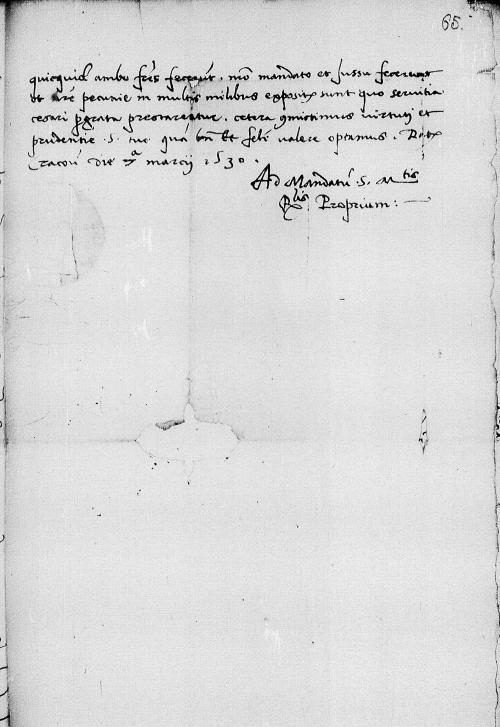 65.
quicquid ambo frēs feceāūt, mō mandato et Jussu fecerunt
et nrē pecunie in multis milibus exposite sunt quo servitia
cesari pgrata prestarentur. cetera cōmictimus virtuti et
prudentie .S. tue quā bn̄ Et feli valere optamus. Datx
Cracoū die xa marcij 1530.
Ad Mandatū .S. Mtis
Rlis Proprium: